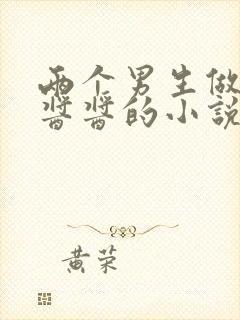 两个男生做
酱酱的小说
黄荣